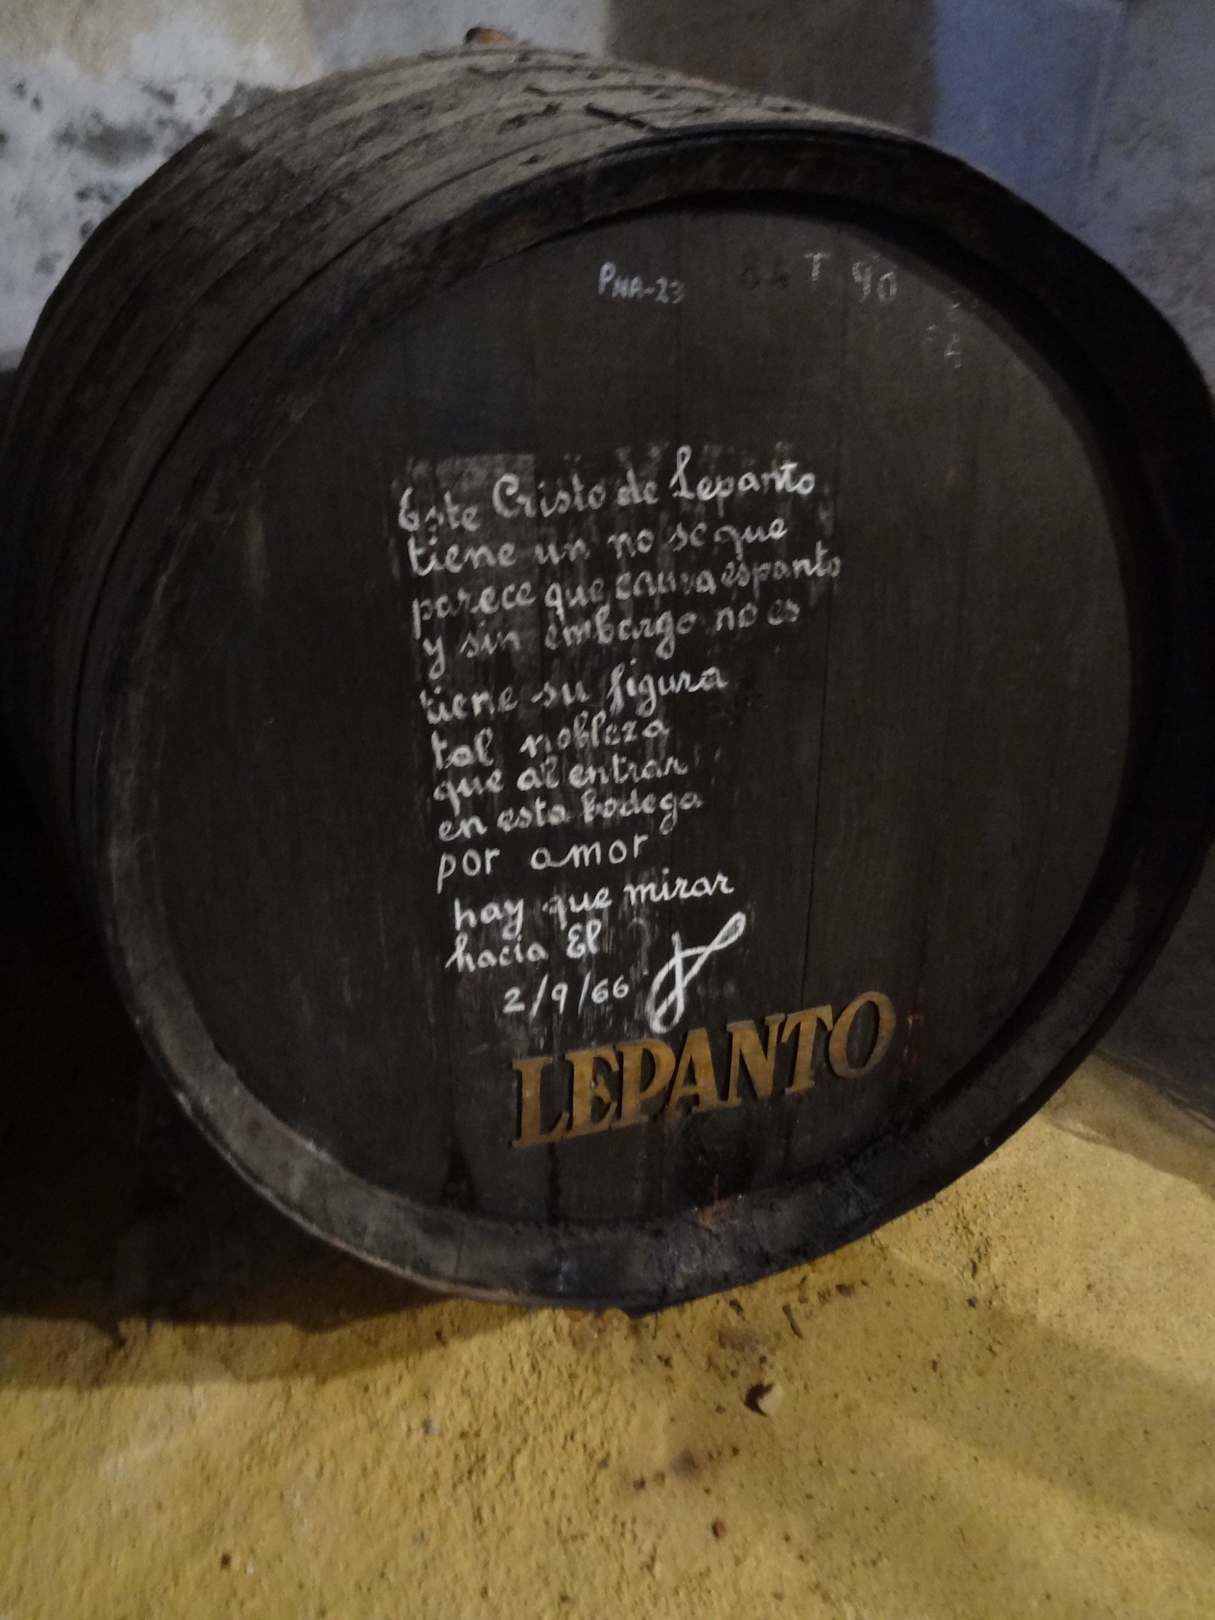 PNA-23 84 T 90
Este Cristo de Lepanto
tiene un no se que
parece que causa espanto
y sin embargo no es
tiene su figura
tal nobleza
que al entrar
en esta bodega
por amor
hay que mirar
hacia El
2/9/66
LEPANTO